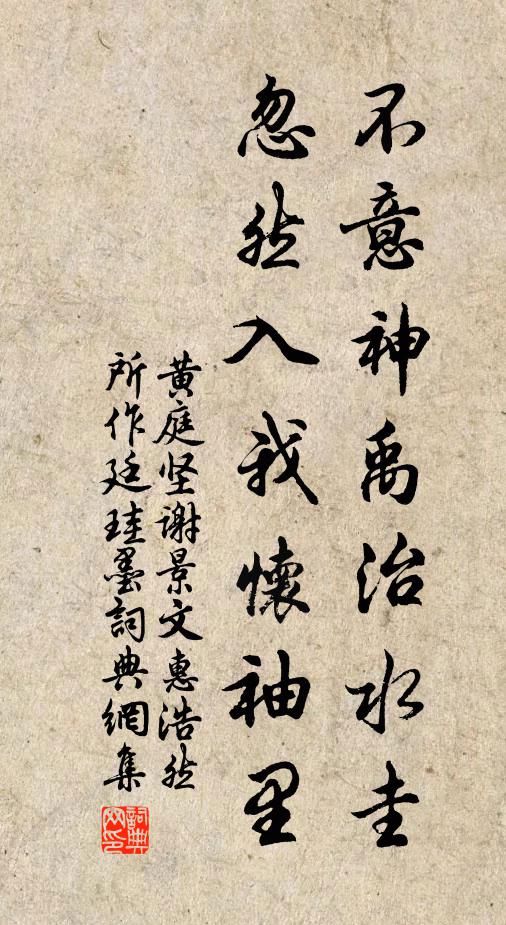 不意神禹治水圭
忽然入我懷袖里
黄庭坚谢景文惠浩然
所作廷珪墨詞典網集
詞典网印